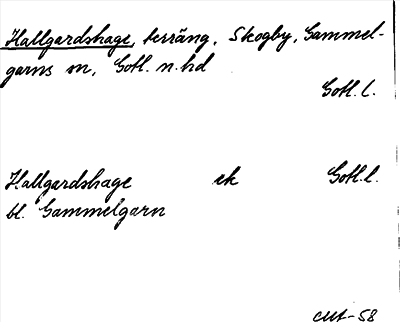 Hallgardshage, terräng, Skogby, Gammel-
garns sn, Gotl. n. hd
Gotl. l.
Hallgardshage ek Gotl. l.
bl. Gammelgarn
-58